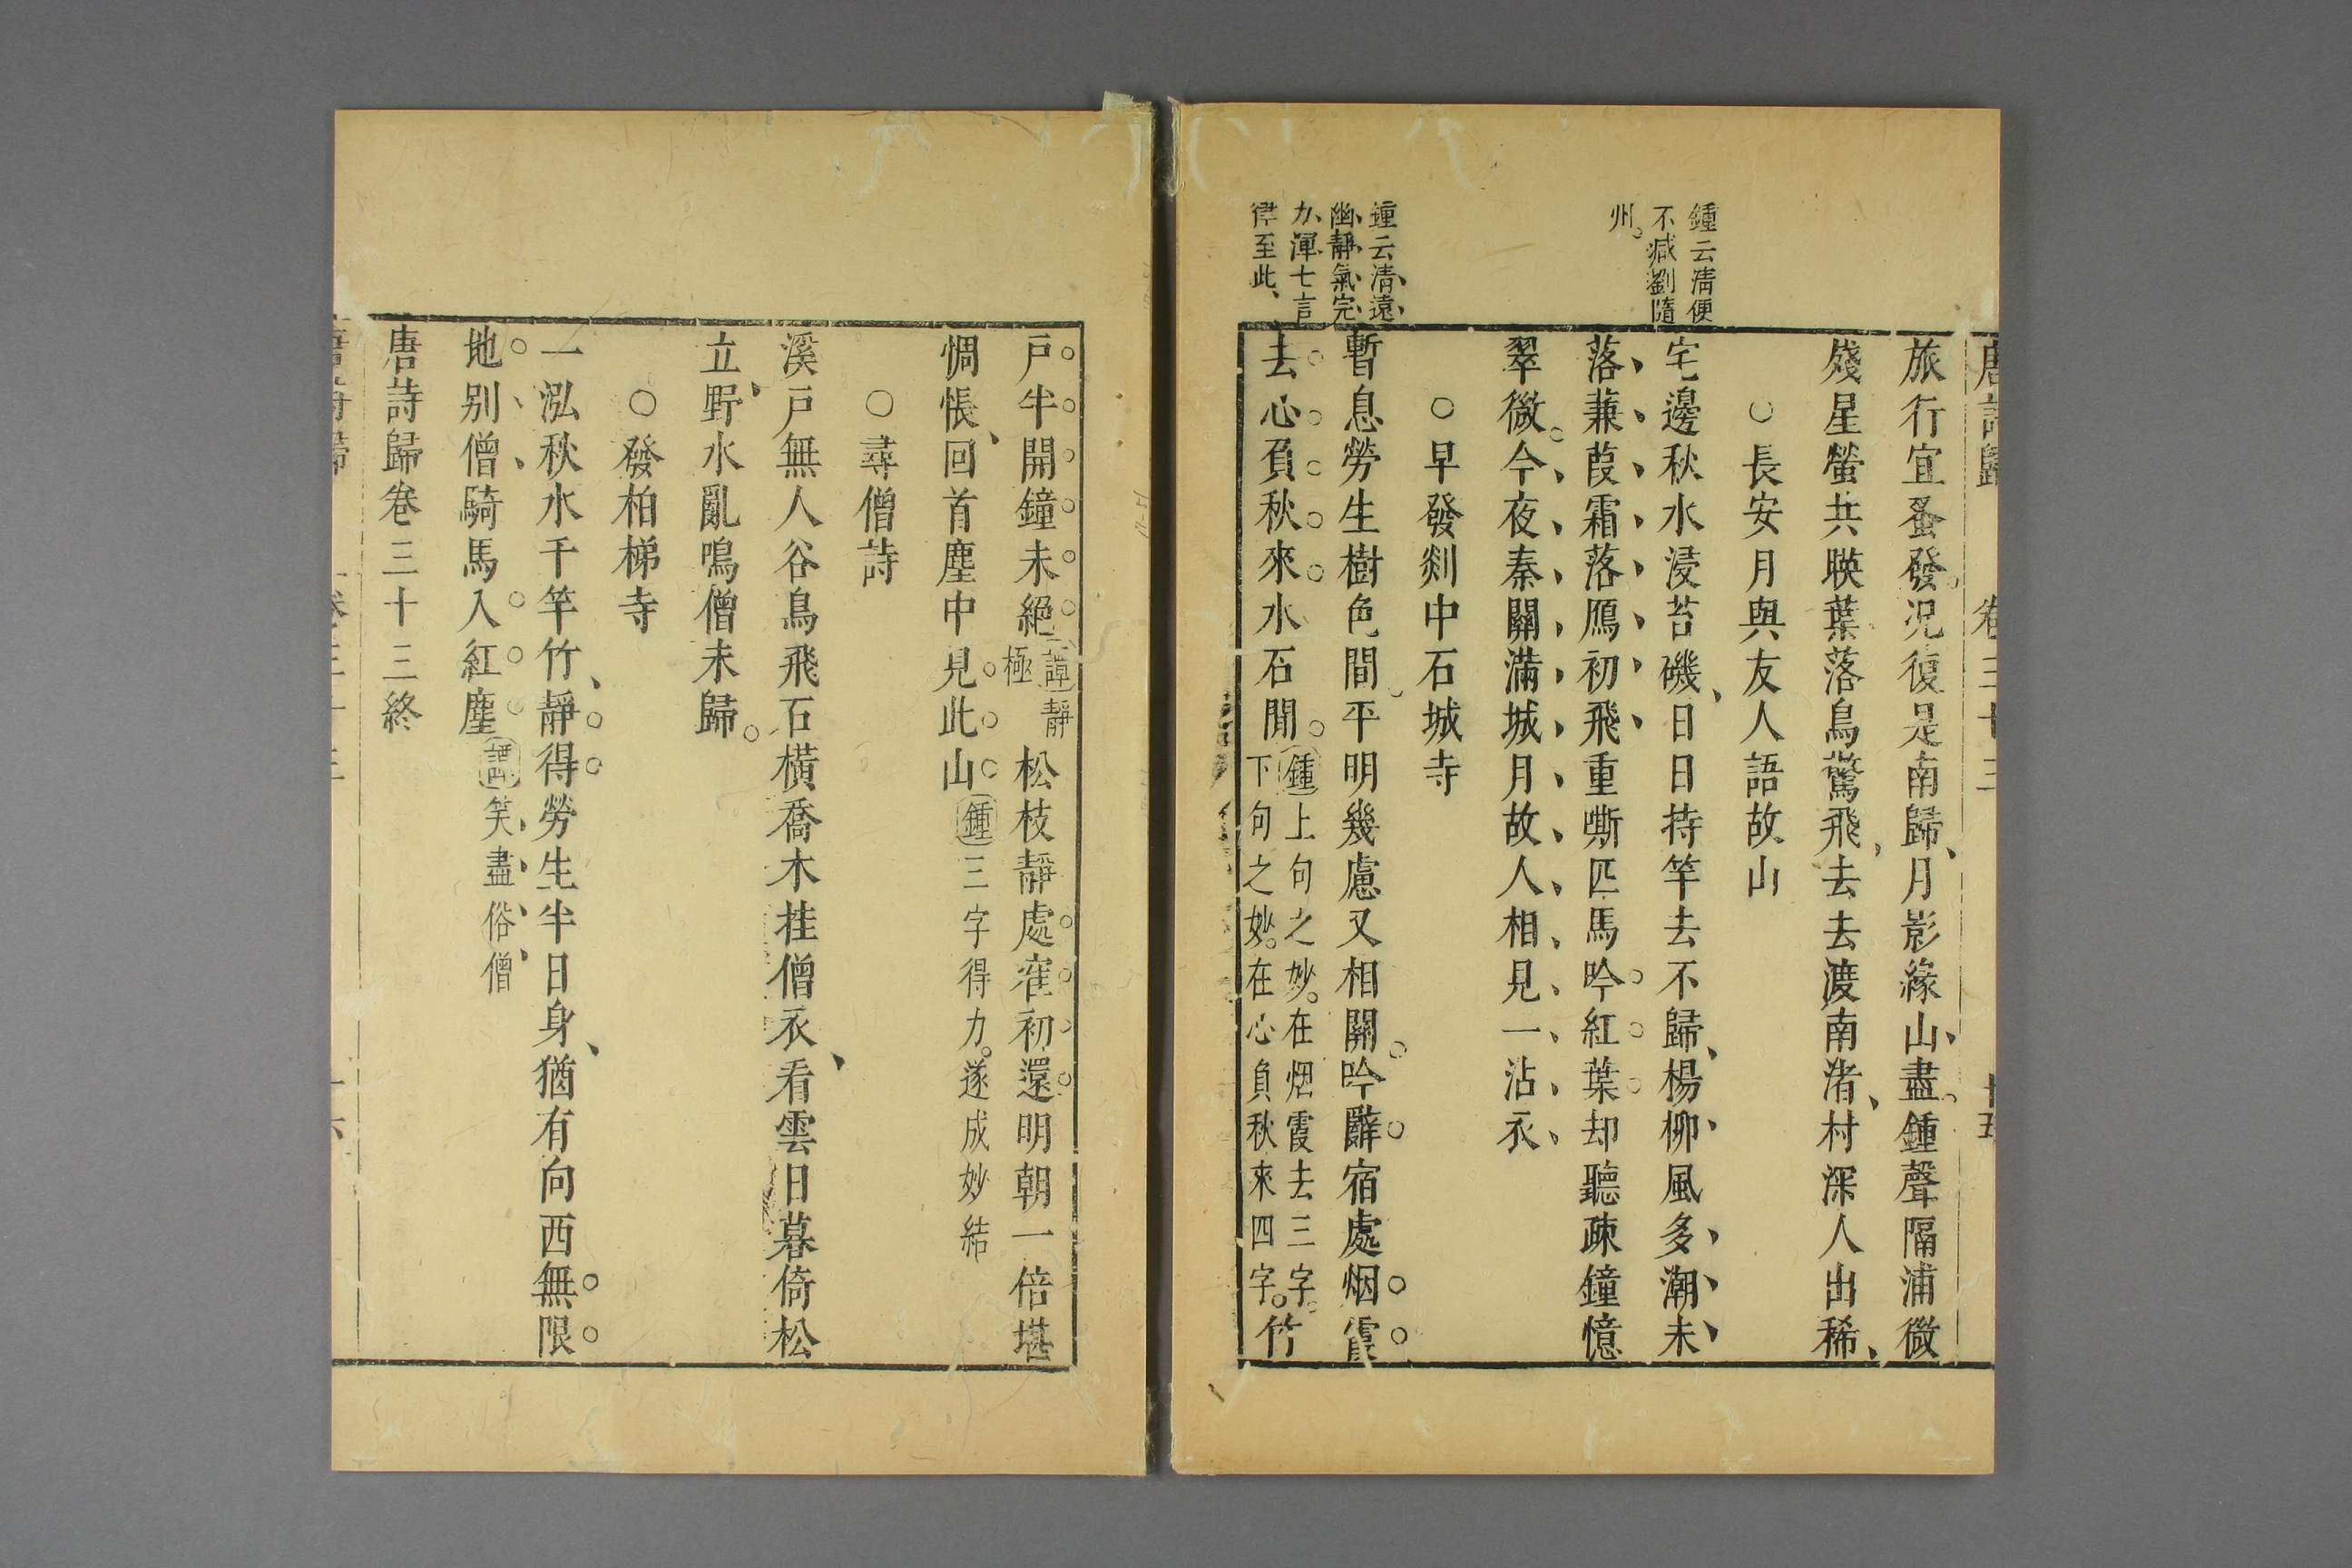 唐詩歸 卷三十三 十五
旅行宜蚤發況復是南歸月影緣山盡鍾聲隔浦微
殘星螢共映葉落鳥驚飛去去渡南渚村深人出稀
○長安月與友人語故山
鍾云清便
不減劉隨
州
宅邊秋水浸苔磯日日持竿去不歸楊柳風多潮未
落蒹葭霜落鴈初飛重嘶匹馬吟紅葉却聽疎鐘憶
翠微今夜秦關滿城月故人相見一沾衣
○早發剡中石城寺
鍾云清遠
幽靜氣完
力渾七言
律至此
暫息勞生樹色間平明幾慮又相關吟辭宿處烟霞
去心負秋來水石閒鍾上句之妙在烟霞去三字
下句之妙在心負秋來四字竹
戶半開鐘未絕譚靜
極松枝靜處寉初還明朝一倍堪
惆悵回首塵中見此山鍾三字得力遂成妙結
○尋僧詩
溪戶無人谷鳥飛石橫喬木挂僧衣看雲日暮倚松
立野水亂鳴僧未歸
○發柏梯寺
一泓秋水千竿竹靜得勞生半日身猶有向西無限
地别僧騎馬入紅塵譚笑盡俗僧
唐詩歸卷三十三終